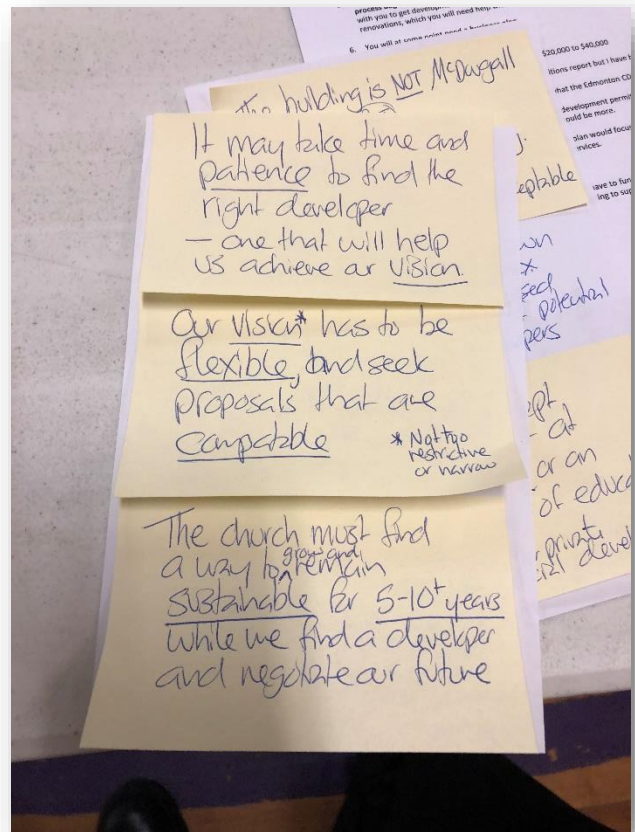 with you to get develop
renovations, which you will need help
6. You will at some point need a business plan
$20,000 to $40,000
itions report but I have
hat the Edmonton CD
development permi
ould be more.
plan would focu
rvices.
have to fun
ing to sup
The building is NOT McDougall
eptable
It may take time and
patience to find the
right developer
– one that will help
us achieve our vision
Our vision* has to be
flexible, and seek
proposals that are
compatable
* Not too
restrictive
or narrow
The church must find
a way to grow and remain
sustainable for 5-10+ years
while we find a developer
and negotiate our future
wn
*
seed
- potential
pers
ept
- at
or an
of educa
private
devel